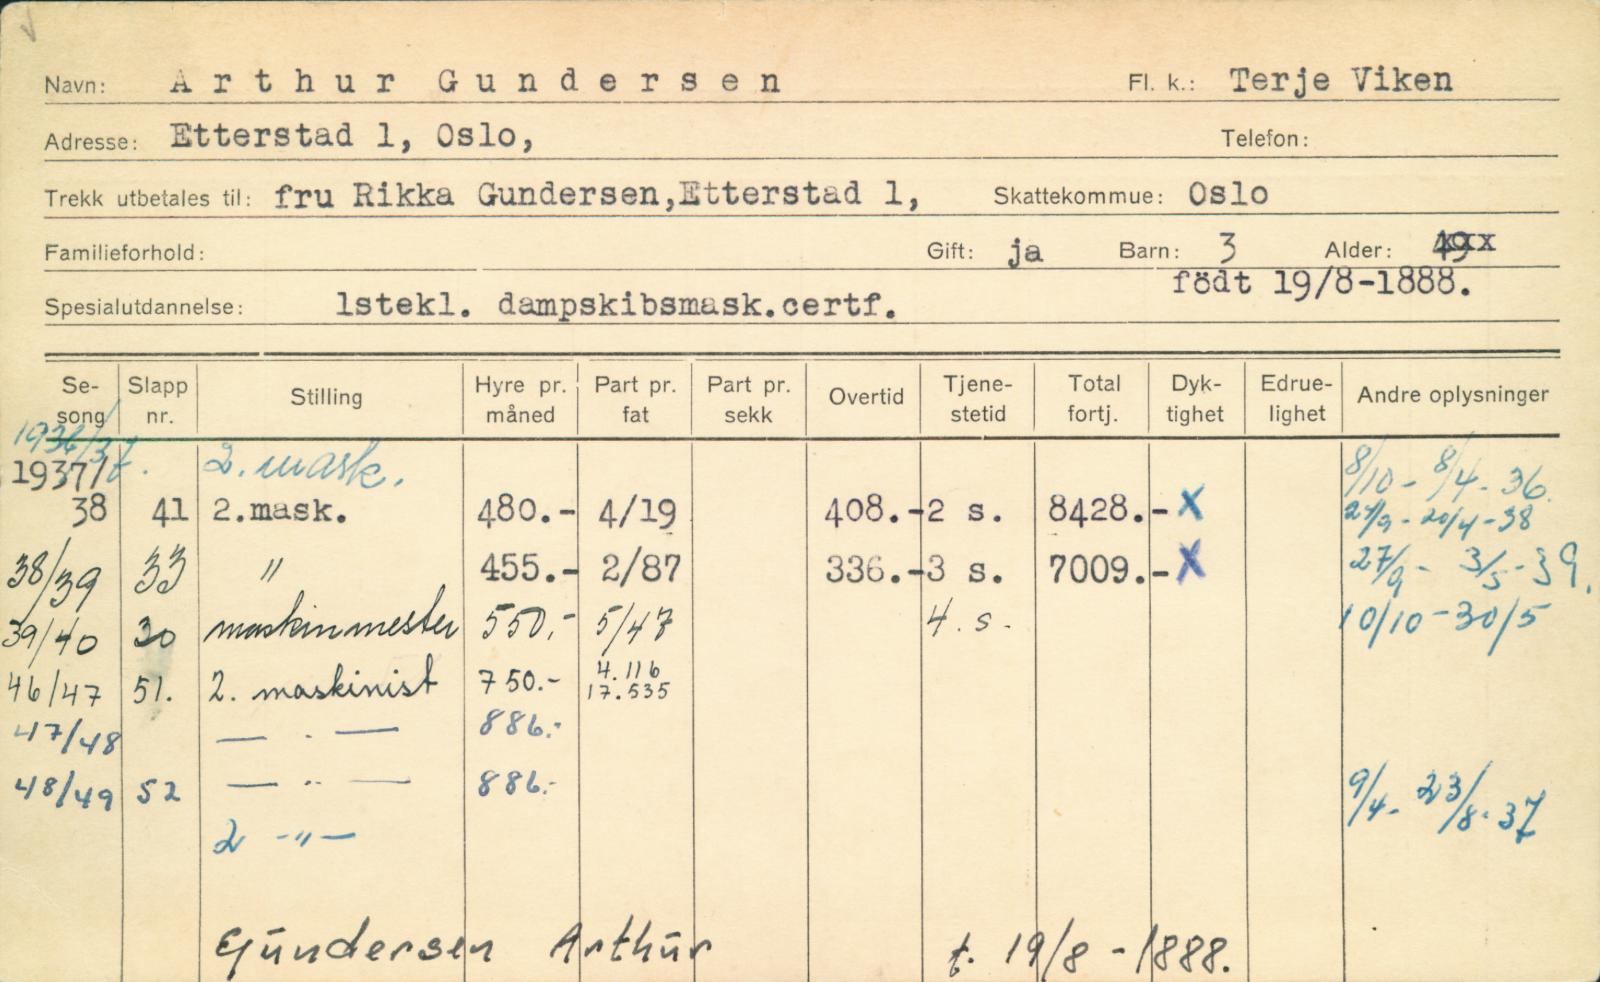 Navn: Arthur Gundersen Fl. k.: Terje Viken
Adresse: Etterstad 1, Oslo, Telefon:
Trekk utbetales til: fru Rikka Gundersen,Etterstad 1, Skattekommue: Oslo
Familieforhold: Gift: ja Barn: 3 Alder:
födt 19/8-1888.
Spesialutdannelse: 1stekl. dampskibsmask.certf.
Se-song Slapp nr. Stilling Hyre pr. måned Part pr. fat Part pr. sekk Overtid Tjene-stetid Total fortj. Dyk-tighet Edrue-lighet Andre oplysninger
1936/37. 2. mask. 8/10 - 8/4 - 36.
1937/
38 41 2.mask. 480.- 4/19 408.- 2 s. 8428.- x 27/9 - 20/4 - 38
38/39 33 " 455.- 2/87 336.- 3 s. 7009.- x 27/9 - 3/5 - 39.
39/40 30 maskinmester 550,- 5/47 4. s. 10/10 - 30/5
46/47 51. 2. maskinist 750.- 4.116
17.535
47/48 — . — 886.-
48/49 52 — .. — 886.- 9/4 - 23/8 - 37
2 -"-
Gundersen Arthur f. 19/8 - 1888.